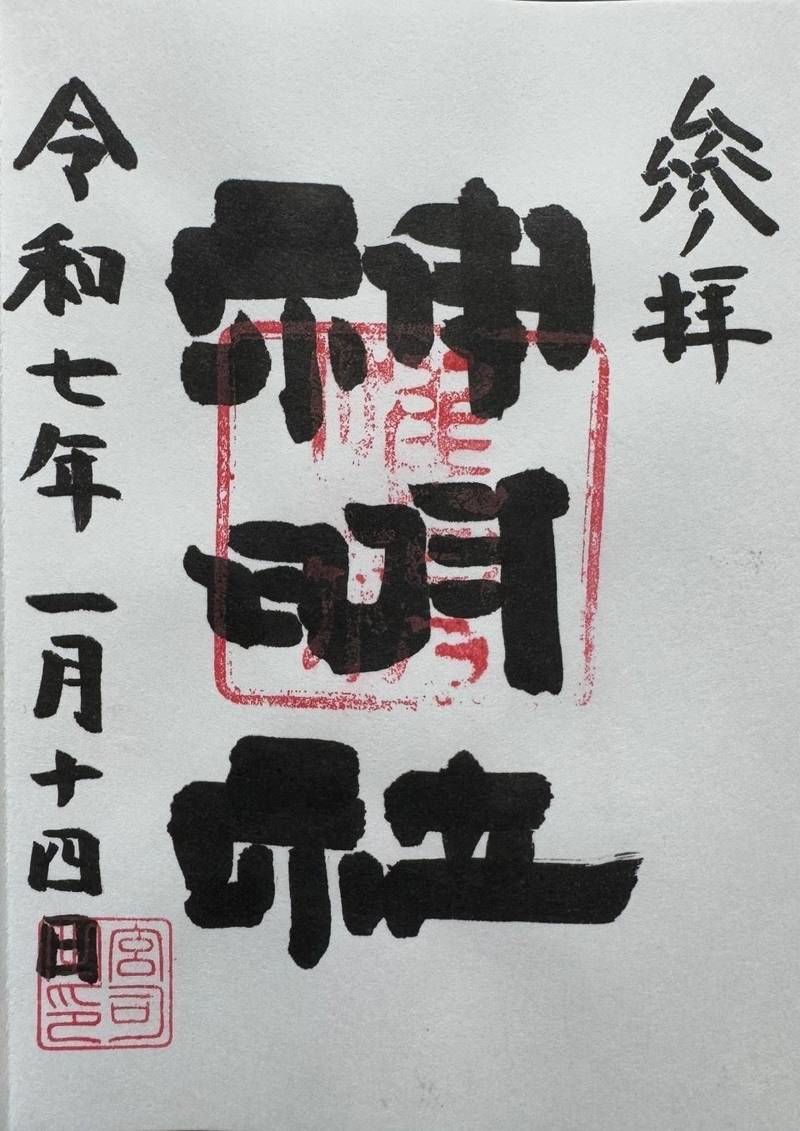 参拝
神明社
令和七年一月十四日
宮司之印